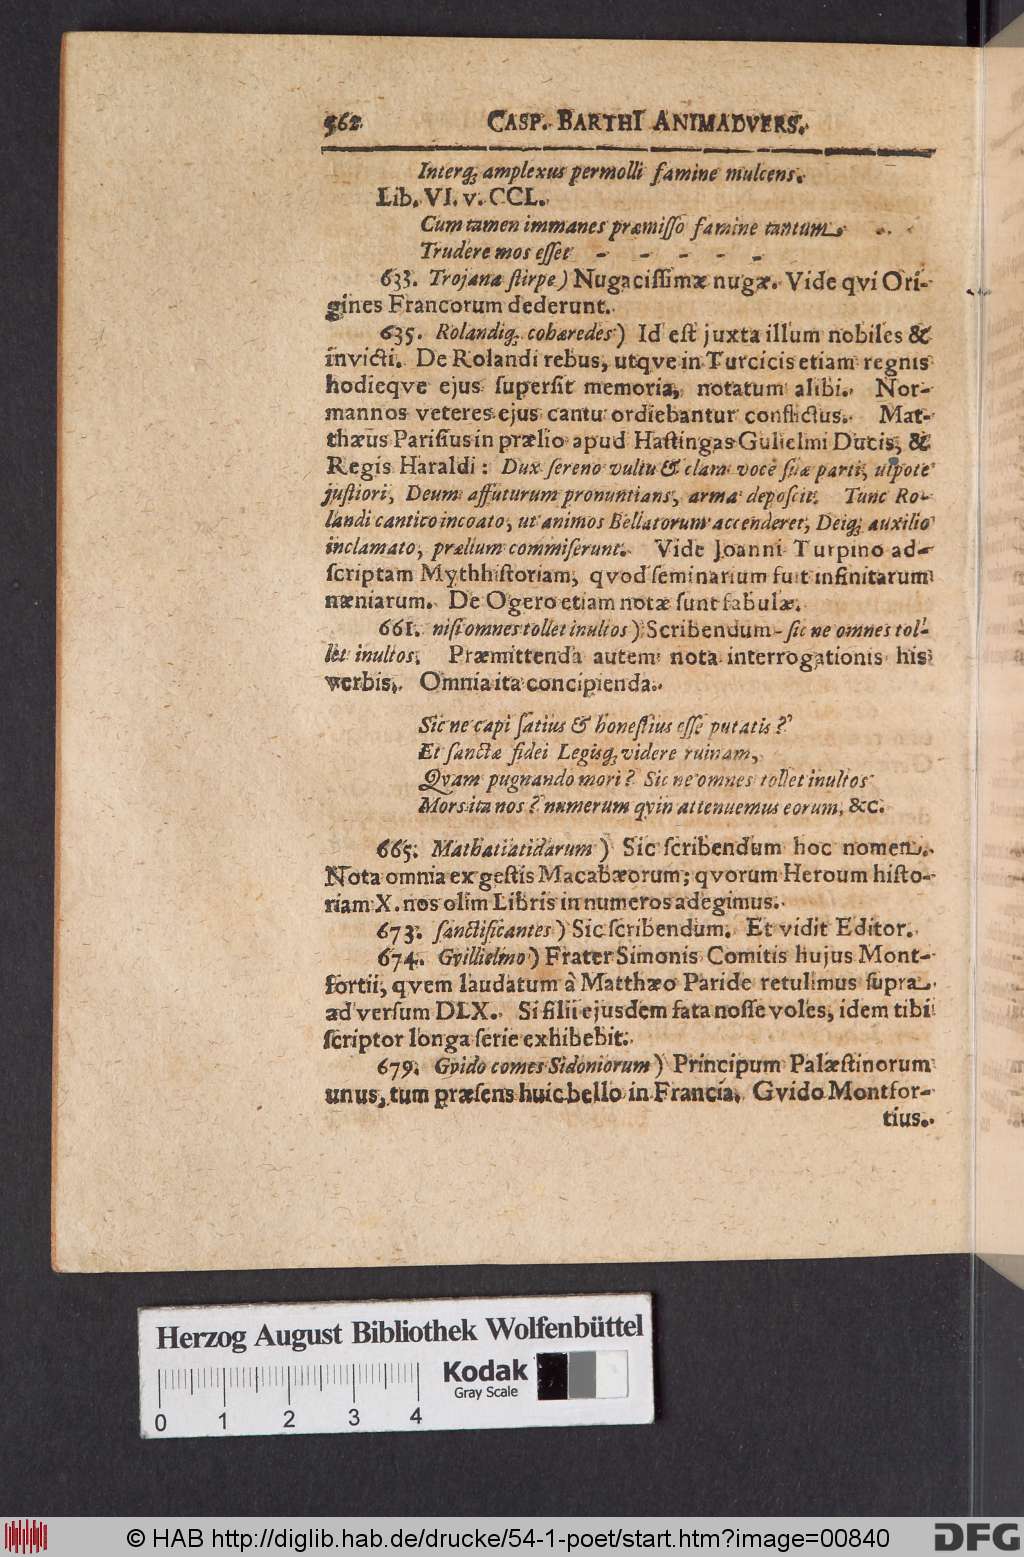 562. CASP. BARTHI ANIMADVERS.
Interq; amplexus permolli famine mulcens.
Lib. VI. v. CCL.
Cum tamen immanes præmisso famine tantum
Trudere mos esset - - - - -
633. Trojana stirpe) Nugacissimæ nugæ. Vide qvi Ori-
gines Francorum dederunt.
635. Rolandiq; cohæredes) Id est juxta illum nobiles &
invicti. De Rolandi rebus, utqve in Turcicis etiam regnis
hodieqve ejus supersit memoria, notatum alibi. Nor-
mannos veteres ejus cantu ordiebantur conflictus. Mat-
thæus Parisius in prælio apud Hastingas Gulielmi Ducis, &
Regis Haraldi: Dux sereno vultu & clara voce suæ parti, utpote
justiori, Deum affuturum pronuntians, arma deposcit. Tunc Ro-
landi cantico incoato, ut animos Bellatorum accenderet, Deiq; auxilio
inclamato, prælium commiserunt. Vide Joanni Turpino ad-
scriptam Mythhistoriam, qvod seminarium fuit infinitarum
næniarum. De Ogero etiam notæ sunt fabulæ.
661. nisi omnes tollet inultos) Scribendum - sic ne omnes tol-
let inultos. Præmittenda autem nota interrogationis his
verbis. Omnia ita concipienda.
Sic ne capi satius & honestius esse putatis?
Et sanctæ fidei Legisq; videre ruinam,
Qvam pugnando mori? Sic ne omnes tollet inultos
Mors ita nos? numerum qvin attenuemus eorum, &c.
665. Mathatiatidarum) Sic scribendum hoc nomen.
Nota omnia ex gestis Macabæorum; qvorum Heroum histo-
riam X. nos olim Libris in numeros adegimus.
673. sanctificantes) Sic scribendum. Et vidit Editor.
674. Gvillielmo) Frater Simonis Comitis hujus Mont-
fortii, qvem laudatum à Matthæo Paride retulimus supra
ad versum DLX. Si filii ejusdem fata nosse voles, idem tibi
scriptor longa serie exhibebit.
679. Gvido comes Sidoniorum) Principum Palæstinorum
unus, tum præsens huic bello in Francia. Gvido Montfor-
tius.
Herzog August Bibliothek Wolfenbüttel
Kodak
Gray Scale
0 1 2 3 4
© HAB http://diglib.hab.de/drucke/54-1-poet/start.htm?image=00840
DFG